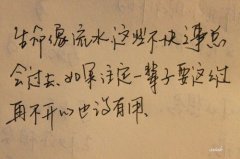 生命像流水,这些不快之事总
会过去.如果注定一辈子要这么过
再不开心也没有用.